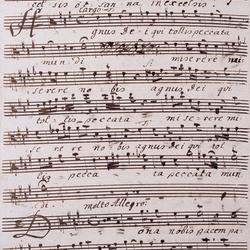 cel sis o san na in excelsis
Largo
Agnus de-i qui tollis peccata
mun-di miserere
se rere no bis agnus dei qui
tol-lis peccata mi se re re mi
se re re no-bis agnus dei qui tol
pecca ta peccata mun
di. molto Allegro:
Dona nobis pacem pa